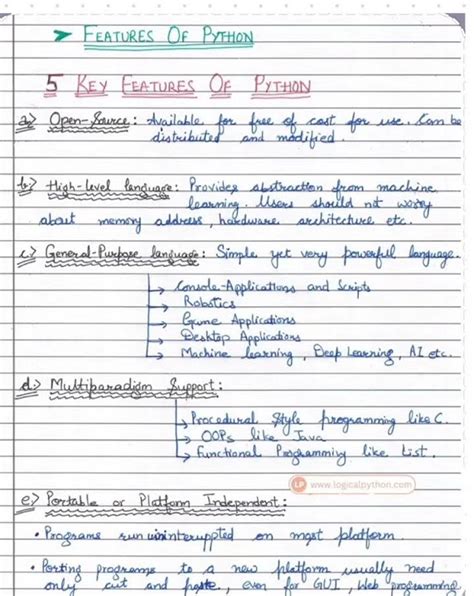 ➤ FEATURES OF PYTHON
5 KEY FEATURES OF PYTHON
a> Open-Source: Available for free of cost for use. Can be
distributed and modified.
b> High-level language: Provides abstraction from machine
learning. Users should not worry
about memory address, hardware architecture etc.
c> General-Purpose language: Simple yet very powerful language.
↳ Console-Applications and Scripts
↳ Robotics
↳ Game Applications
↳ Desktop Applications
↳ Machine learning, Deep Learning, AI etc.
d> Multiparadigm Support:
↳ Procedural Style programming like C.
↳ OOPs like Java
↳ Functional Programmiy like List.
LP www.logicalpython.com
e> Portable or Platform Independent:
• Programs run uninteruppted on most platform.
• Porting programs to a new platform usually need
only cut and paste, even for GUI, Web programming,